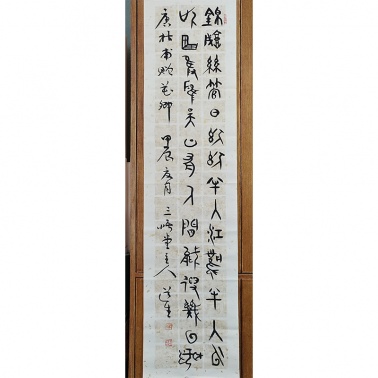 錦城絲管日紛紛半入江風半入云
此曲只應天上有人間能得幾回聞
唐杜甫贈花卿 甲辰夏月 三 堂主人